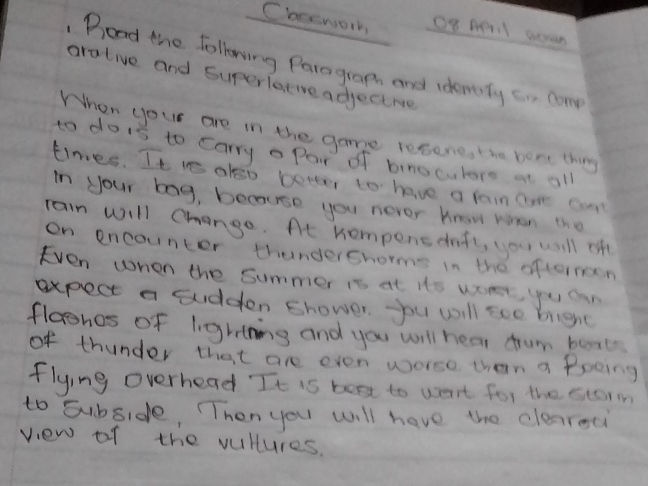 Classwork
08 April
. Read the following Paragraph and identify six comp
arative and superlative adjective
When your are in the game reserve, the best thing
to do is to carry a pair of binoculars at all
times. It is also better to have a rain
in your bag, because you never know when the
rain will change. At Kempensdrift, you will oft
on encounter thunderstorms in the afternoon
Even when the summer is at its worst, you can
expect a sudden shower. You will see bright
flashes of lightning and you will hear drum beats
of thunder that are even worse than a Boeing
flying overhead It is best to wait for the storm
to subside, Then you will have the clearest
view of the vultures.